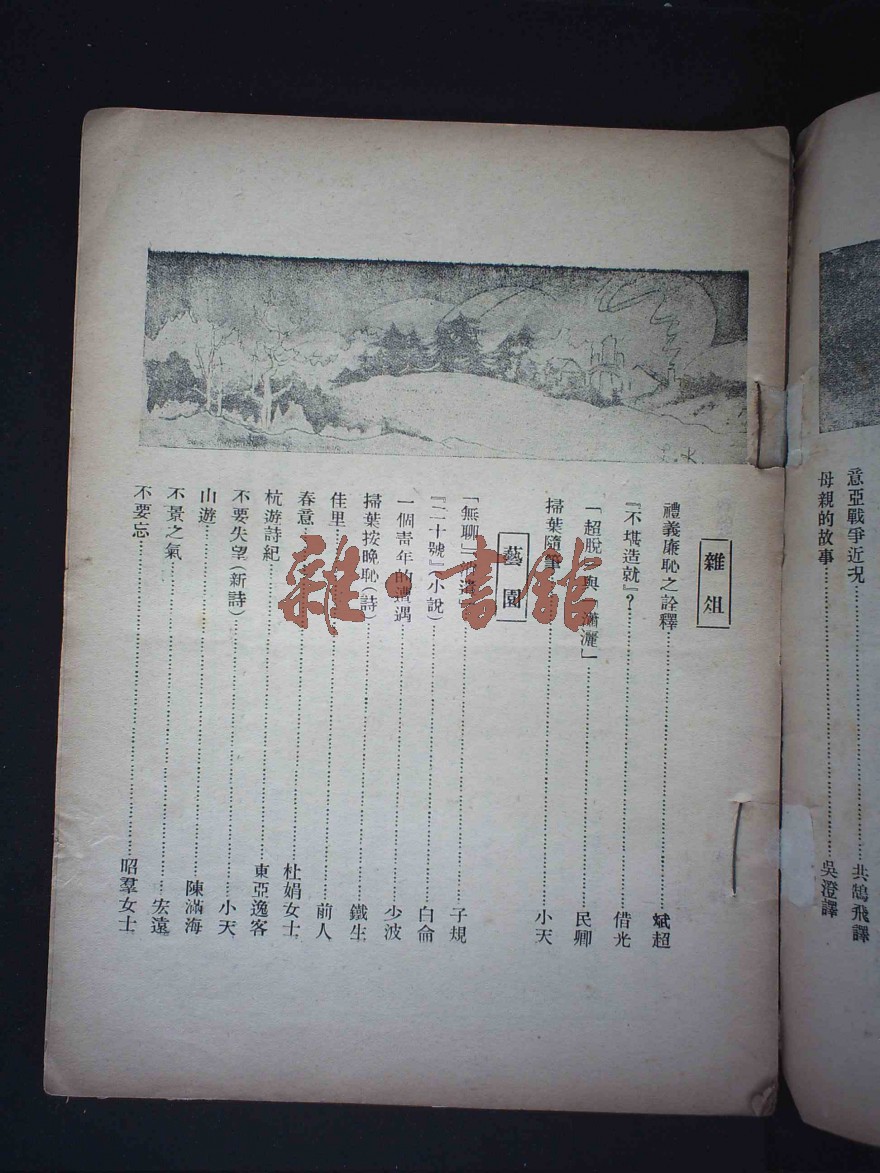 意亞戰爭近况……共鵠飛譯
母親的故事……吳澄譯
雜俎
禮義廉恥之詮釋……斌超
『不堪造就』？……借光
「超脫」與「瀟灑」……民卿
掃葉隨筆……小天
藝園
「無聊」……子規
『二十號』(小說)……白侖
一個青年的遭遇……少波
掃葉按晚恥(詩)……鐵生
佳里……前人
春意……杜娟女士
杭游詩紀……東亞逸客
不要失望(新詩)……小天
山遊……陳滿海
不景之氣……宏遠
不要忘……昭羣女士
雜·書館